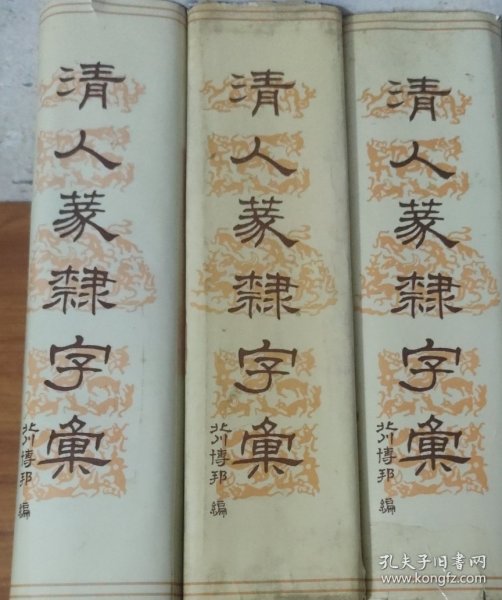 清人篆隸字彙
北川博邦 編
清人篆隸字彙
北川博邦 編
清人篆隸字彙
北川博邦 編
孔夫子旧书网
www.kongfz.com